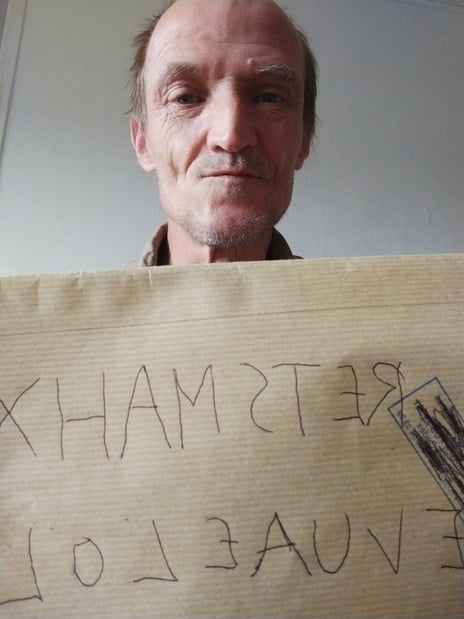 XHAMSTER
LOLEAUVE